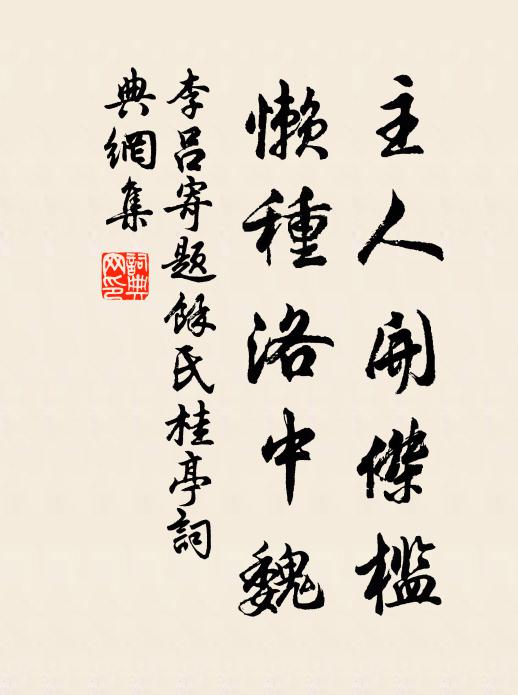 主人開傑檻
懶種洛中魏
李呂寄題餘氏桂亭詞
典網集
詞典網印